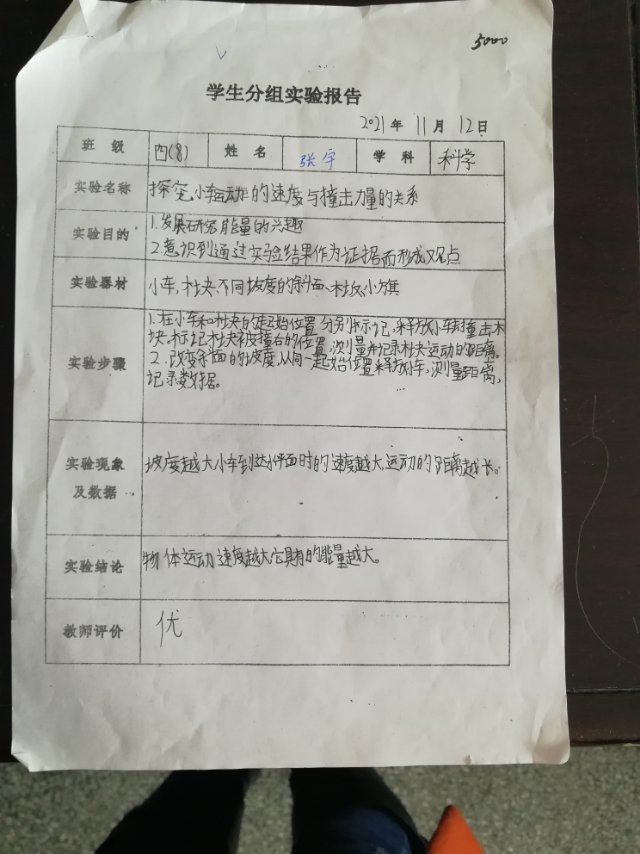 5000
学生分组实验报告
2021年 11月 12日
班 级 四(8) 姓 名 张宇 学 科 科学
实验名称 探究小车运动的速度与撞击力量的关系
实验目的 1.发展研究能量的兴趣
2.意识到通过实验结果作为证据而形成观点
实验器材 小车,木块,不同坡度的斜面、木板、小旗
实验步骤 1.在小车和木块的起始位置分别标记,释放小车去撞击木
块,标记木块被撞后的位置,测量并记录木块运动的距离。
2.改变斜面的坡度,从同一起始位置释放小车,测量距离,
记录数据。
实验现象
及数据 坡度越大小车到达水平面时的速度越大,运动的距离越长。
实验结论 物体运动速度越大它具有的能量越大。
教师评价 优